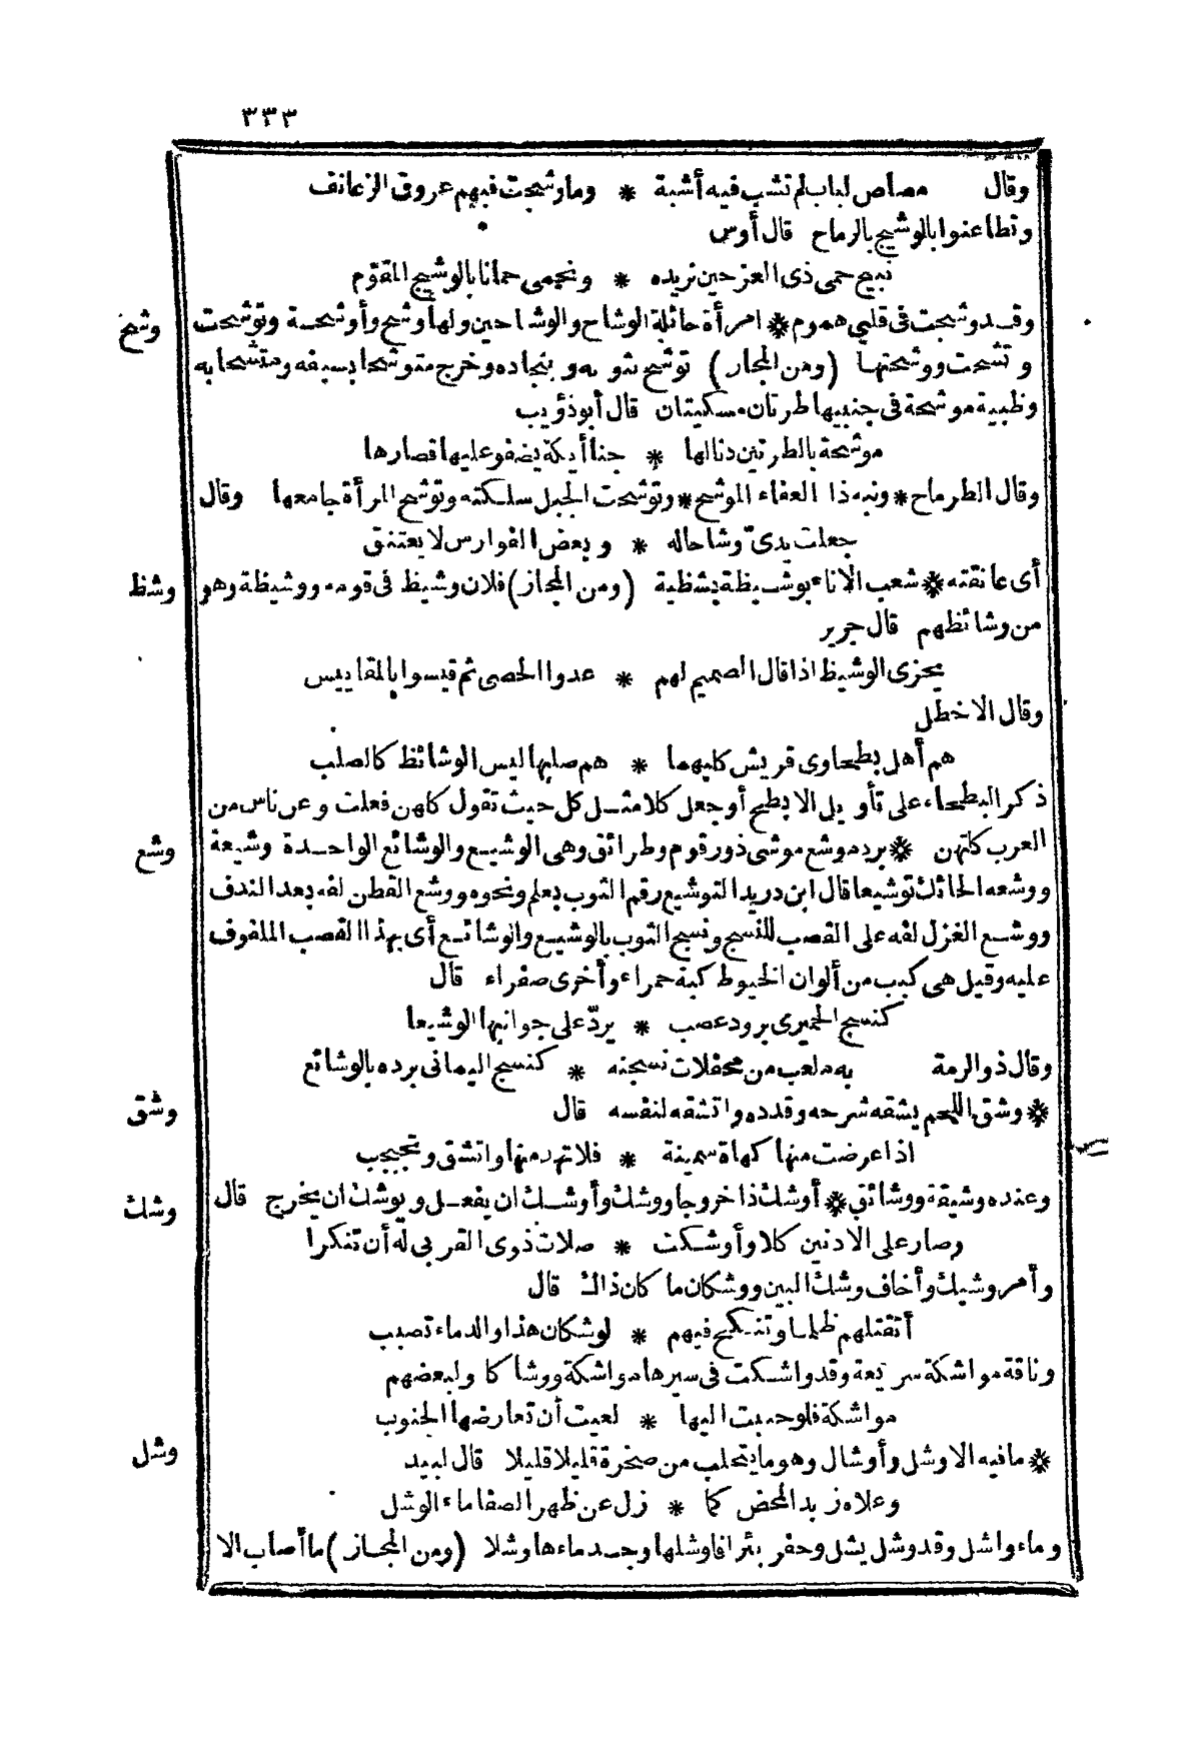 ٣٣٣
وقال مصاص لباب لم تشب فيه أشبة * وما وشجت فيهم عروق الزعانف
وتطاعنوا بالوشيج بالرماح قال أوس
نبيح حمى ذى العز حين نريده * ونحمى حمانا بالوشيج المقوّم
وشح وقد وشجت فى قلبي هموم * امرأة جائلة الوشاح والوشاحين ولها وشح وأوشحة وتوشحت
وتشحت ووشحتها (ومن المجاز) توشح بثوبه وبنجاده وخرج متوشحا بسيفه ومتشحا به
وظبية موشحة فى جنبيها طرتان مسكيتان قال أبو ذؤيب
موشحة بالطرتين دنا لها * جنا أيكة يضفو عليها قصارها
وقال الطرماح * ونبه ذا العفاء الموشح * وتوشحت الجبل سلكته وتوشح المرأة جامعها وقال
جعلت يدىّ وشاحا له * وبعض الفوارس لا يعتنق
وشظ أى عانقته * شعب الاناء بوشيظة بشظية (ومن المجاز) فلان وشيظ فى قومه ووشيظة وهو
من وشائظهم قال جرير
يخزى الوشيظ اذا قال الصميم لهم * عدوا الحصى ثم قيسوا بالمقاييس
وقال الاخطل
هم أهل بطحاوى قريش كليهما * هم صلبها ليس الوشائظ كالصلب
ذكر البطحاء على تأويل الابطح أو جعل كلا مثل كل حيث تقول كلهن فعلت وعن ناس من
وشع العرب كلتهن * برد موشع موشى ذو رقوم وطرائق وهى الوشيع والوشائع الواحدة وشيعة
ووشعه الحائك توشيعا قال ابن دريد التوشيع رقم الثوب بعلم ونحوه ووشع القطن لفه بعد الندف
ووشع الغزل لفه على القصب للنسج ونسج الثوب بالوشيع والوشائع أى بهذا القصب الملفوف
عليه وقيل هى كبب من ألوان الخيوط كبة حمراء وأخرى صفراء قال
كنسج الحميرى برود عصب * يردّ على جوانبها الوشيعا
وقال ذو الرمة به ملعب من محفلات نسجنه * كنسج اليمانى برده بالوشائع
وشق * وشق اللحم يشقه شرحه وقدده واتشقه لنفسه قال
اذا عرضت منها كهاة سمينة * فلا تهد منها واتشق وتجبجب
وشك وعنده وشيقة ووشائق * أوشك ذا خروجا ووشك وأوشك ان يفعل ويوشك ان يخرج قال
وصار على الادنين كلا وأوشكت * صلات ذوى القربى له أن تنكرا
وأمر وشيك وأخاف وشك البين ووشكان ما كان ذاك قال
أتقتلهم ظلما وتنكح فيهم * لوشكان هذا والدماء تصبب
وناقة مواشكة سريعة وقد واشكت فى سيرها مواشكة ووشاكا ولبعضهم
مواشكة فلو حببت اليها * لعيت أن تعارضها الجنوب
وشل * ما فيه الا وشل وأوشال وهو ما يتحلب من صخرة قليلا قليلا قال لبيد
وعلاه زبد المحض كما * زل عن ظهر الصفا ماء الوشل
وماء واشل وقد وشل يشل وحفر بئرا فأوشلها وجد ماءها وشلا (ومن المجاز) ما أصاب الا